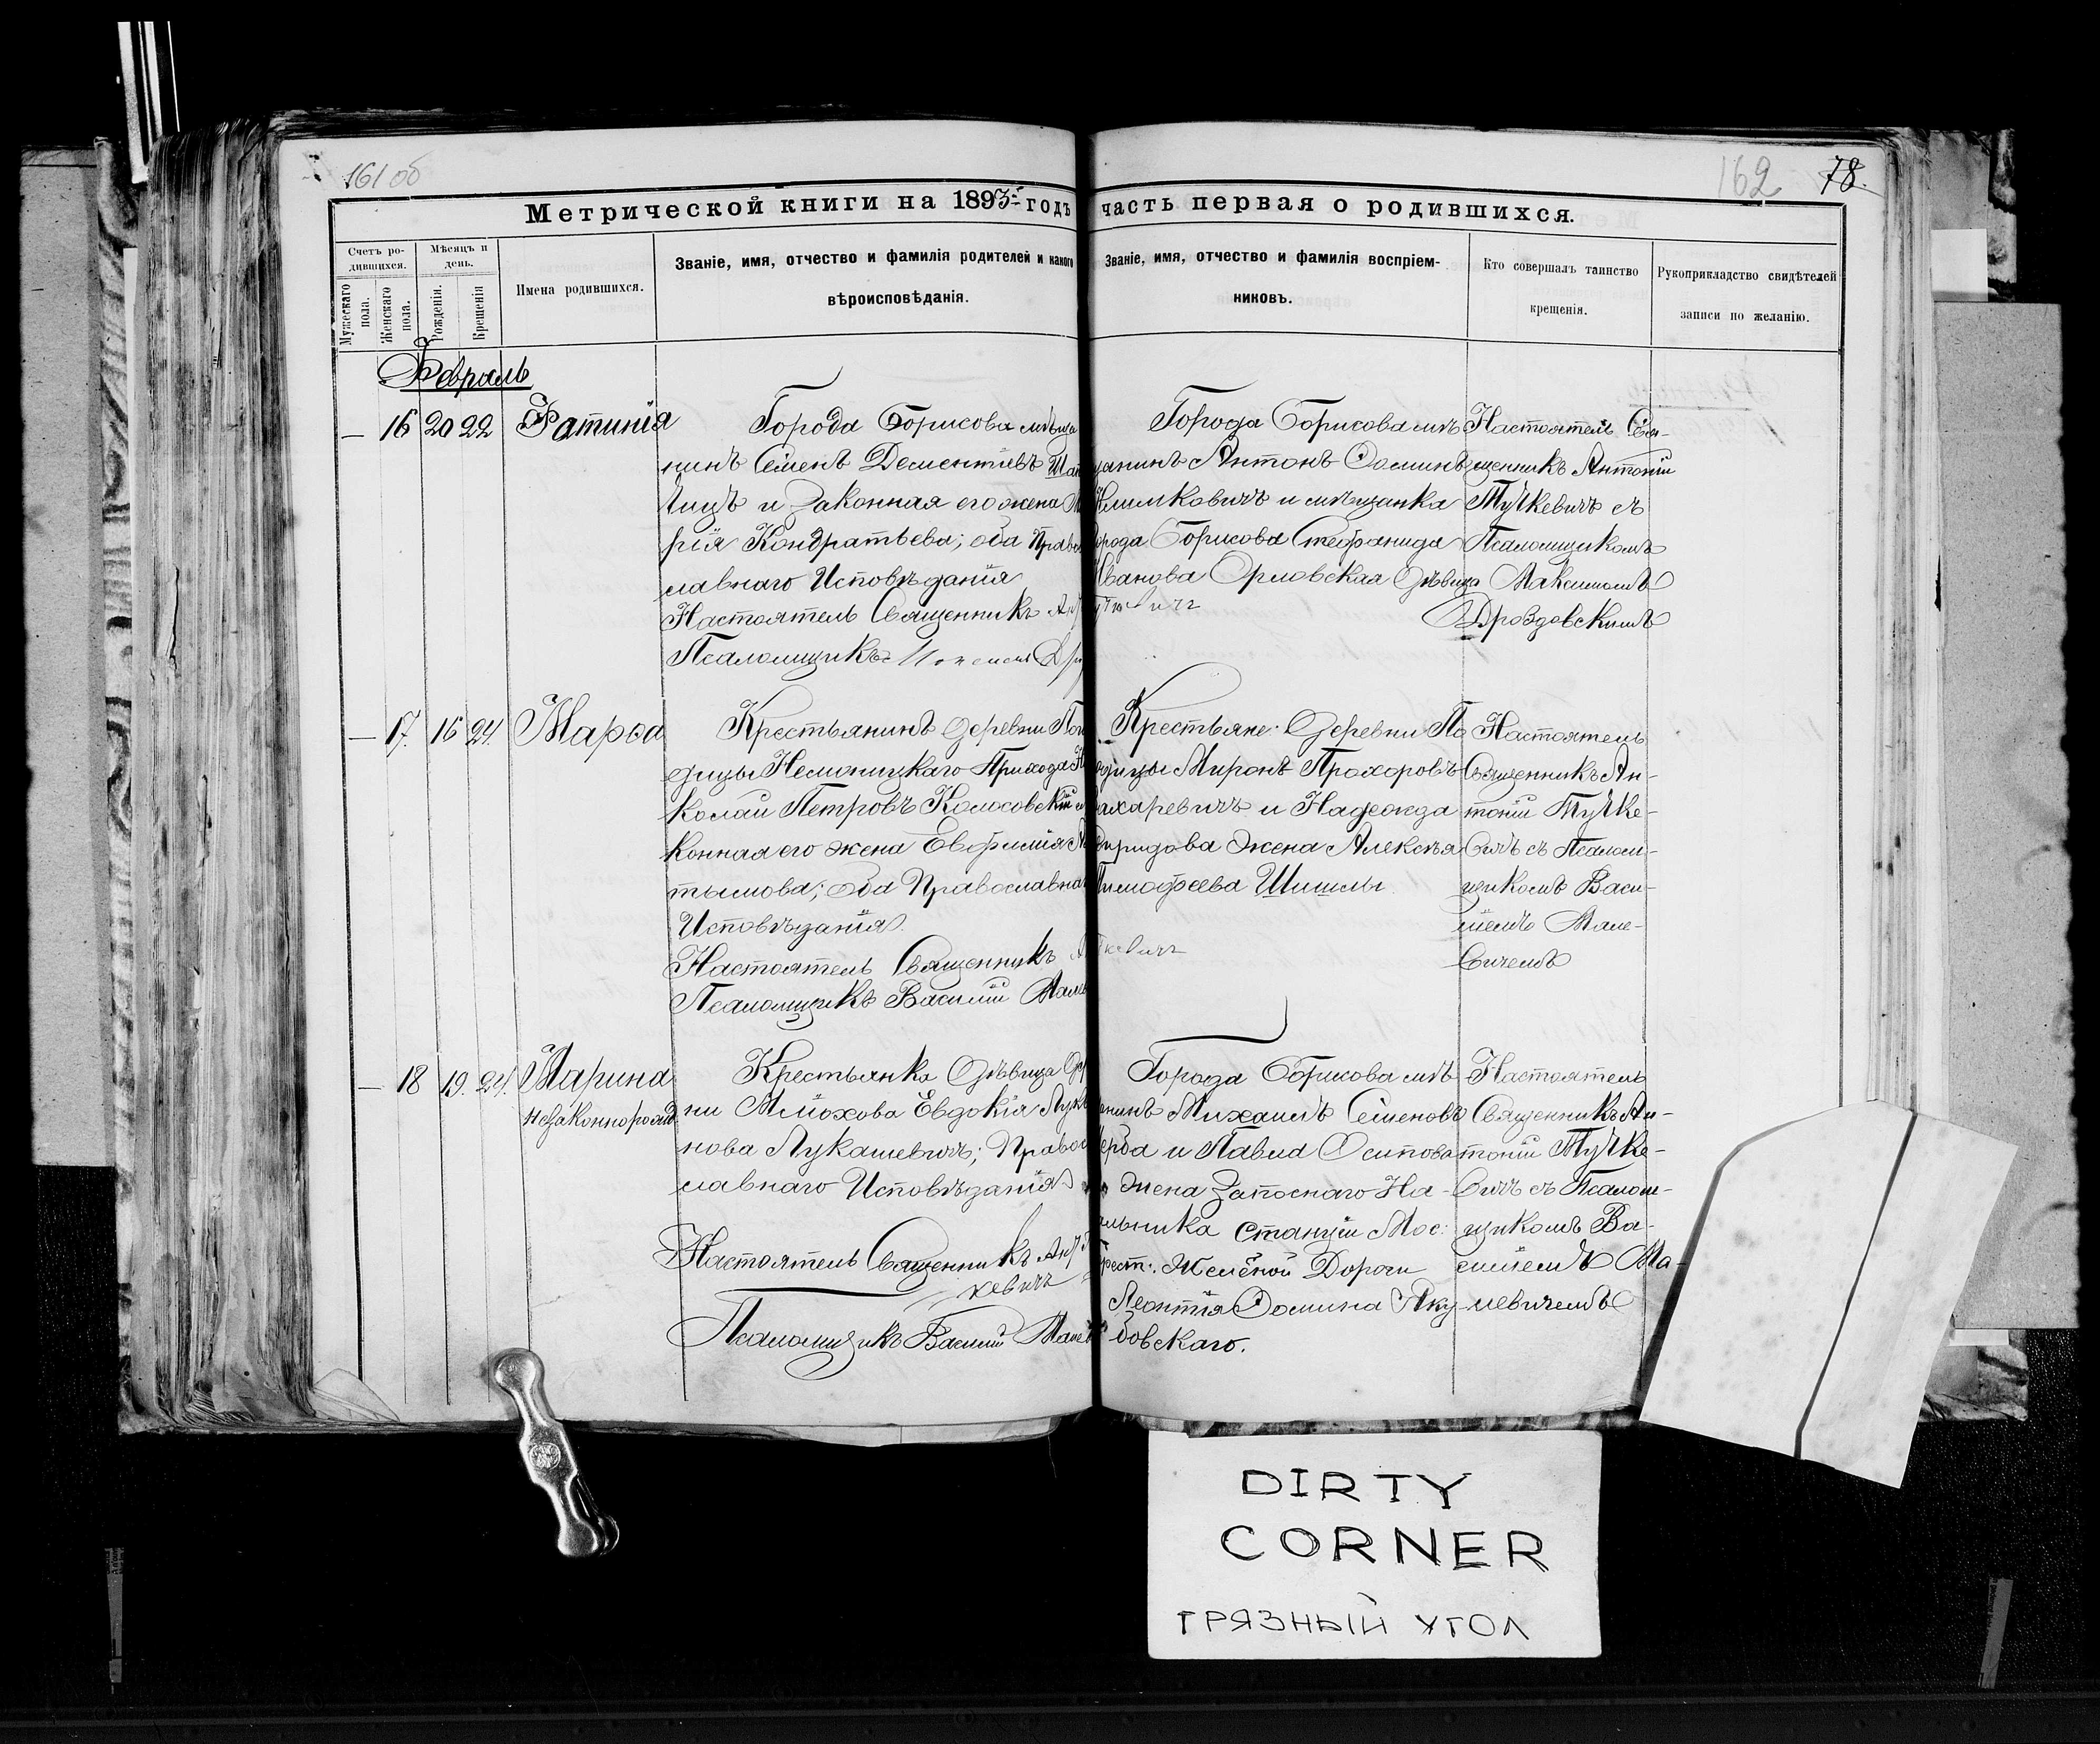 161 об
162 78.
Метрической книги на 1893й годъ часть первая о родившихся.
Счетъ родившихся.
Мужескаго пола.
Женскаго пола.
Мѣсяцъ и день.
Рожденія.
Крещенія
Имена родившихся.
Званіе, имя, отчество и фамилія родителей и какого
вѣроисповѣданія.
Званіе, имя, отчество и фамилія воспріем-
никовъ.
Кто совершалъ таинство
крещенія.
Рукоприкладство свидѣтелей
записи по желанію.
Февраль
— 16 20 22 Фотинія
Города Борисова мѣща
нинъ Семенъ Дементіевъ
и законная его жена
рія Кондратьева; оба Право
славнаго Исповѣданія
Настоятель Священникъ
Псаломщикъ
Города Борисова мѣ
щанинъ Антонъ
Климковичъ и мѣщанка
города Борисова Стефанида
Иванова Орловская дѣвица
Настоятель Свя-
щенникъ Антоній
Тучкевичъ съ
Псаломщикомъ
Максимомъ
Дроздовскимъ
— 17. 16 24. Марѳа
Крестьянинъ деревни
дицы Немоницкаго Прихода
колай Петровъ Колосовскій
конная его жена Евфимія
тьмова; оба Православна
Исповѣданія.
Настоятель Священникъ
Псаломщикъ Василій Мале
Крестьяне: деревни По
Миронъ Прохоровъ
Захаревичъ и Надежда
Спиридова жена Алексѣя
Тимофеева Шишлы
Настоятель
Священникъ Ан-
тоній Тучке-
вичъ съ Псалом-
щикомъ Васи-
ліемъ Мале-
вичемъ
— 18 19. 24. Марина
незаконнорожд.
Крестьянка дѣвица Дер
ни Мліохова Евдокія
нова Лукашевичъ; Право
славнаго Исповѣданія
Настоятель Священникъ Ант
кевичъ
Псаломщикъ Василій Малев
Города Борисова мѣ
Михаилъ Семеновъ
и Павла Осипова
жена Запаснаго На-
чальника станціи Мос:
Брест: Желѣзной Дороги
Леонтія Яку
бовскаго.
Настоятель
Священникъ Ан-
тоній Тучке-
вичъ съ Псалом-
щикомъ Ва-
силіемъ Ма-
левичемъ
DIRTY
CORNER
ГРЯЗНЫЙ УГОЛ